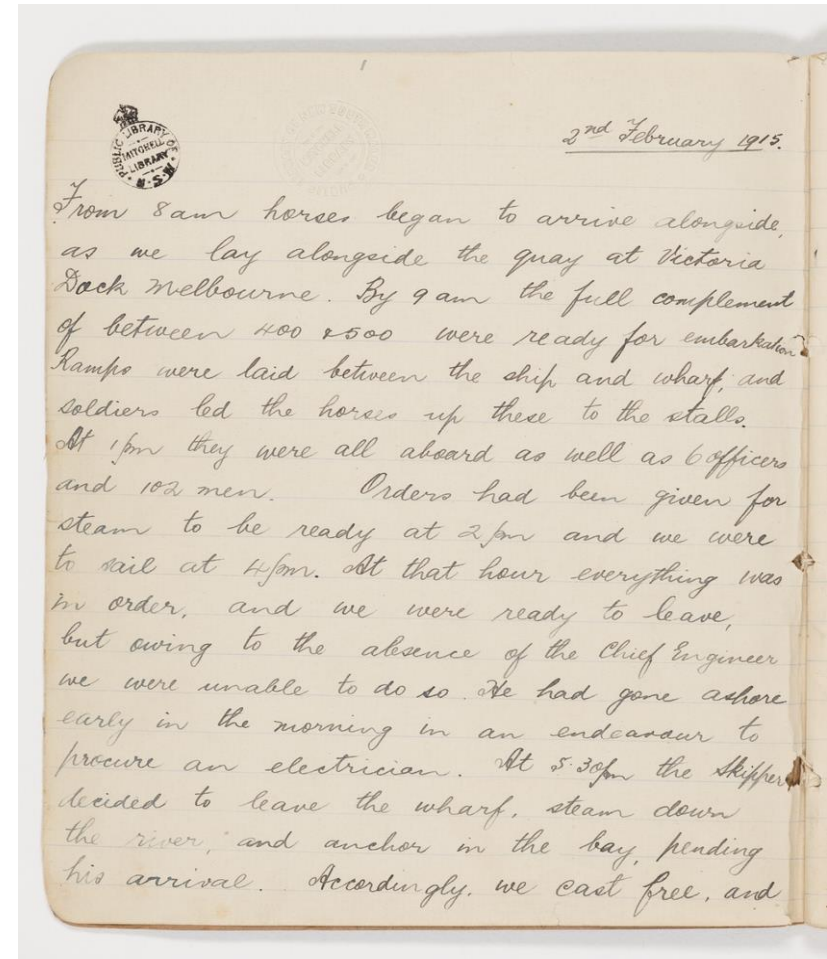 1
PUBLIC LIBRARY OF
MITCHELL
LIBRARY
N·S·W
2nd February 1915.
From 8am horses began to arrive alongside,
as we lay alongside the quay at Victoria
Dock Melbourne. By 9am the full complement
of between 400 & 500 were ready for embarkation
Ramps were laid between the ship and wharf, and
soldiers led the horses up these to the stalls.
At 1pm they were all aboard as well as 6 officers
and 102 men. Orders had been given for
steam to be ready at 2pm and we were
to sail at 4pm. At that hour everything was
in order, and we were ready to leave,
but owing to the absence of the Chief Engineer
we were unable to do so. He had gone ashore
early in the morning in an endeavour to
procure an electrician. At 5.30pm the Skipper
decided to leave the wharf, steam down
the river, and anchor in the bay, pending
his arrival. Accordingly, we cast free, and